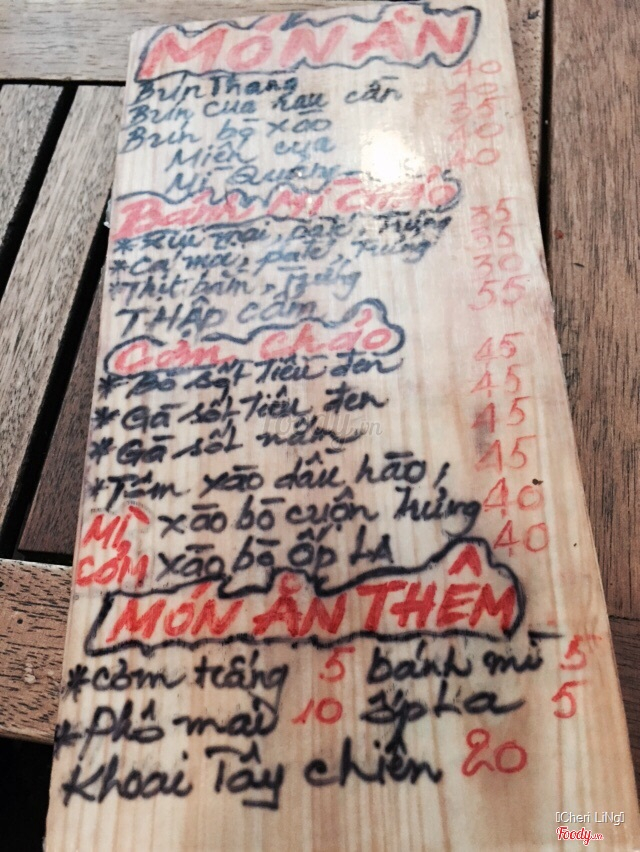 MÓN ĂN
Bún Thang 40
Bún cua rau cần 40
Bún bò xào 35
Miến cua 40
Mì Quảng 40
Bánh Mì chảo
*Xíu mại, patê, Trứng 35
*Cá mòi, patê, Trứng 35
*Thịt bằm, Trứng 30
THẬP cẩm 55
Cơm chảo
*Bò sốt Tiêu đen 45
*Gà sốt Tiêu đen 45
*Gà sốt nấm 45
*Tôm xào dầu hào, 45
MÌ xào bò cuộn Trứng 40
CƠM xào bò ỐP LA 40
MÓN ĂN THÊM
*cơm trắng 5 bánh mì 5
*Phô mai 10 ốp La 5
Khoai Tây chiên 20
[Cheri LiNg]
Foody.vn